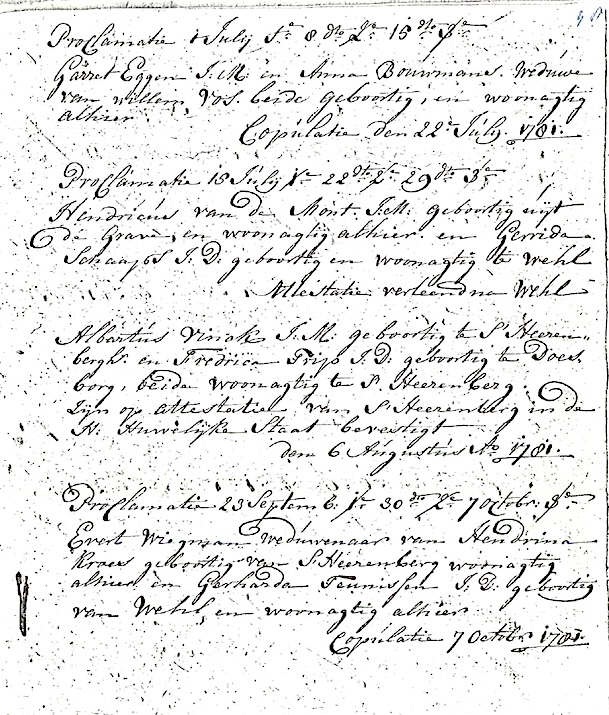 Proclamatie 1 July 1e 8 dto 2e 15 dto 3e
Garret Eggen J.M. en Anna Bouwmans. Weduwe
van willem Vos. beide geboortig, en woonagtig
alhier
Copulatie den 22e July. 1781.
Proclamatie 15 July 1e 22 dto 2e 29 dto 3e
Hendricus van de Mont. J.M: geboortig uijt
de Grave, en woonagtig alhier. en Gerrida
Schaaps J. D. geboortig en woonagtig te Wehl
Attestatie verleend na Wehl
Albartus Vinak J. M: geboortig te S'Heeren-
bergh: en Fredrica Trip J. D. geboortig te Does
borg, beide woonagtig te S. Heerenberg.
Zijn op attestatie van S'Heerenberg in de
H: Huwelijke Staat bevestigt
den 6 Augustus Ao 1781.
Proclamatie 23 Septemb. 1e 30 dto 2e 7 octobr. 3e
Evert Wiegman Weduwenaar van Hendrina
Kroes geboortig van S'Heerenberg woonagtig
alhier, en Gerharda Teunissen J. D: geboortig
van Wehl, en woonagtig alhier
Copulatie 7 Octobr 1781.